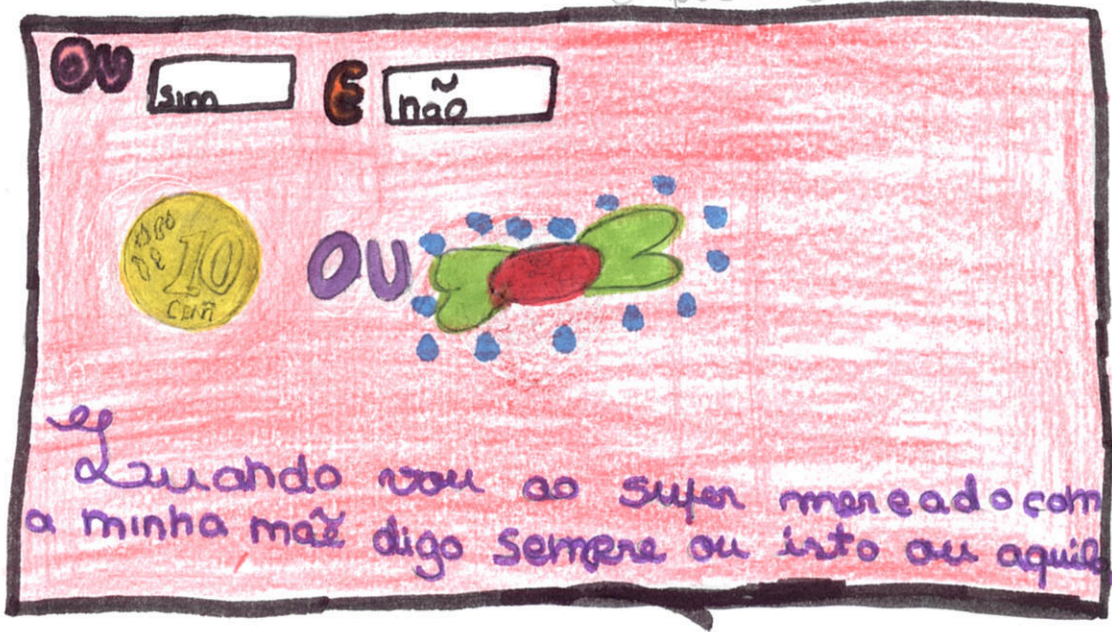 OU sim E não
10
CENT
OU
Quando vou ao super mercado com
a minha mãe digo sempre ou isto ou aquilo